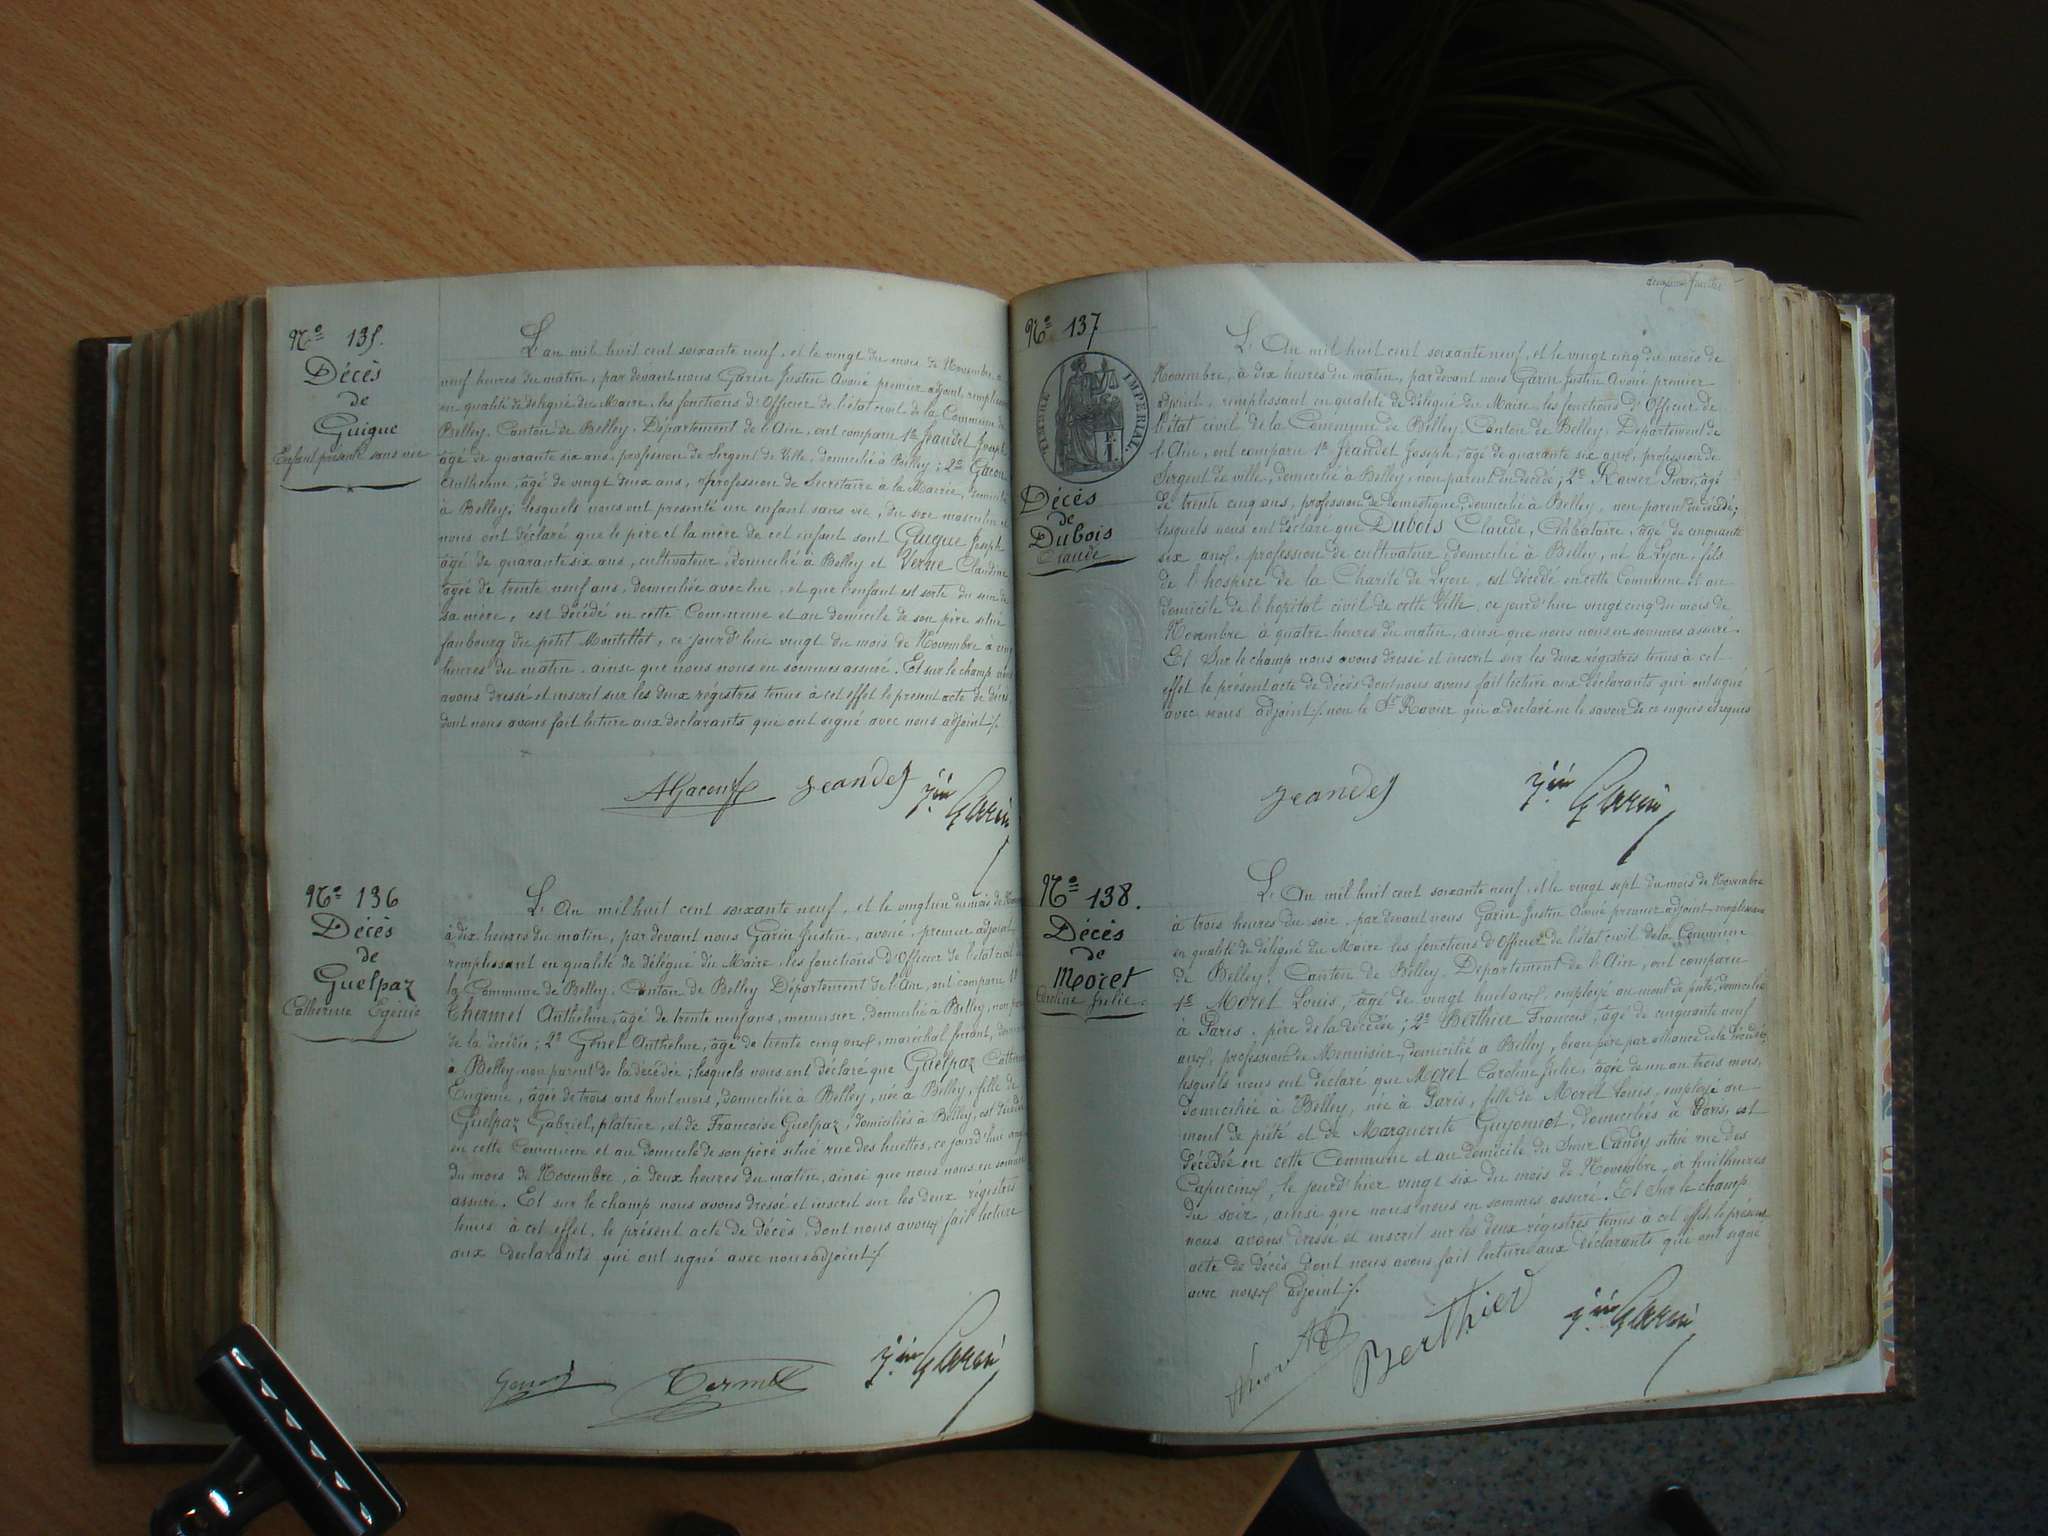 No 135.
Décès
de
Guigue
Enfant présenté sans vie
L'an mil huit cent soixante neuf, et le vingt du mois de Novembre à
neuf heures du matin, par devant nous Garin Justin Avoué premier adjoint, remplissant
en qualité de délégué du Maire, les fonctions d'Officier de l'état civil de la Commune de
Belley, Canton de Belley, Département de l'Ain, ont comparu 1º Jeandet Joseph
âgé de quarante six ans, profession de Sergent de Ville, domicilié à Belley; 2º Gacon
Anthelme, âgé de vingt deux ans, profession de Secrétaire à la Mairie, domicilié
à Belley, lesquels nous ont présenté un enfant sans vie, du sexe masculin et
nous ont déclaré que le père et la mère de cet enfant sont Guigue Joseph
âgé de quarante six ans, cultivateur, domicilié à Belley et Verne Claudine
âgée de trente neuf ans, domiciliée avec lui, et que l'enfant est sorti du sein de
sa mère, est décédé en cette Commune et au domicile de son père situé
faubourg du petit Montillet, ce jourd'hui vingt du mois de Novembre à
heures du matin, ainsi que nous nous en sommes assuré. Et sur le champ nous
avons dressé et inscrit sur les deux régistres tenus à cet effet le présent acte de décès,
dont nous avons fait lecture aux déclarants qui ont signé avec nous adjoint ./.
AGacon Jeandet Jin Garin
No 136
Décès
de
Guelpaz
Catherine Egénie
L'An mil huit cent soixante neuf, et le vingt un du mois de Novembre
à dix heures du matin, par devant nous Garin Justin, avoué, premier adjoint,
remplissant en qualité de délégué du Maire, les fonctions d'Officier de l'état civil de
la Commune de Belley, Canton de Belley Département de l'Ain, ont comparu 1º
Thermet Anthelme, âgé de trente neuf ans, menuisier, domicilié à Belley, non parent
de la décédée; 2º Genet Anthelme, âgé de trente cinq ans, maréchal ferrant, domicilié
à Belley non parent de la décédée; lesquels nous ont déclaré que Guelpaz Catherine
Eugénie, âgée de trois ans huit mois, domiciliée à Belley, née à Belley, fille de
Guelpaz Gabriel, platrier, et de Françoise Guelpaz, domiciliés à Belley, est décédée
en cette Commune et au domicile de son père situé rue des huettes, ce jourd'hui vingt un
du mois de Novembre, à deux heures du matin, ainsi que nous nous en sommes
assuré. Et sur le champ nous avons dressé et inscrit sur les deux régistres
tenus à cet effet, le présent acte de décès, dont nous avons fait lecture
aux déclarants qui ont signé avec nous adjoint ./.
Genet Termet Jin Garin
deuxième feuillet
No 137
TIMBRE IMPERIAL
Décès
de
Dubois
Claude
L'An mil huit cent soixante neuf, et le vingt cinq du mois de
Novembre, à dix heures du matin, par devant nous Garin Justin Avoué premier
adjoint, remplissant en qualité de délégué du Maire les fonctions d'Officier de
l'état civil de la Commune de Belley, Canton de Belley, Département de
l'Ain, ont comparu 1º Jeandet Joseph, âgé de quarante six ans, profession de
Sergent de ville, domicilié à Belley, non parent du décédé; 2º Ravier Pierre, âgé
de trente cinq ans, profession de domestique, domicilié à Belley, non parent du décédé;
lesquels nous ont déclaré que Dubois Claude, Célibataire, âgé de cinquante
six ans, profession de cultivateur, domicilié à Belley, né à Lyon, fils
de l'hospice de la Charité de Lyon, est décédé en cette Commune et au
domicile de l'hopital civil de cette Ville, ce jourd'hui vingt cinq du mois de
Novembre à quatre heures du matin, ainsi que nous nous en sommes assuré.
Et Sur le champ nous avons dressé et inscrit sur les deux régistres tenus à cet
effet le présent acte de décès dont nous avons fait lecture aux déclarants qui ont signé
avec nous adjoint ./. non le Sr Ravier qui a déclaré ne le savoir de ce enquis et requis
Jeandet Jin Garin
No 138.
Décès
de
Moret
Caroline Julie.
L'An mil huit cent soixante neuf, et le vingt sept du mois de Novembre
à trois heures du soir, par devant nous Garin Justin Avoué premier adjoint, remplissant
en qualité de délégué du Maire les fonctions d'Officier de l'état civil de la Commune
de Belley, Canton de Belley, Département de l'Ain, ont comparu
1º Moret Louis, âgé de vingt huit ans, employé au mont de piété, domicilié
à Paris, père de la décédée; 2º Berthier François, âgé de cinquante neuf
ans, profession de Menuisier, domicilié à Belley, beau père par alliance de la décédée
lesquels nous ont déclaré que Moret Caroline Julie, âgée de un an trois mois,
domiciliée à Belley, née à Paris, fille de Moret Louis, employé au
mont de piété et de Marguerite Guyonnot, domiciliés à Paris, est
décédée en cette Commune et au domicile du Sieur Candy situé rue des
Capucins, le jourd'hier vingt six du mois de Novembre, à huit heures
du soir, ainsi que nous nous en sommes assuré. Et Sur le champ
nous avons dressé et inscrit sur les deux régistres tenus à cet effet, le présent
acte de décès dont nous avons fait lecture aux déclarants qui ont signé
avec nous adjoint ./.
Berthier Jin Garin